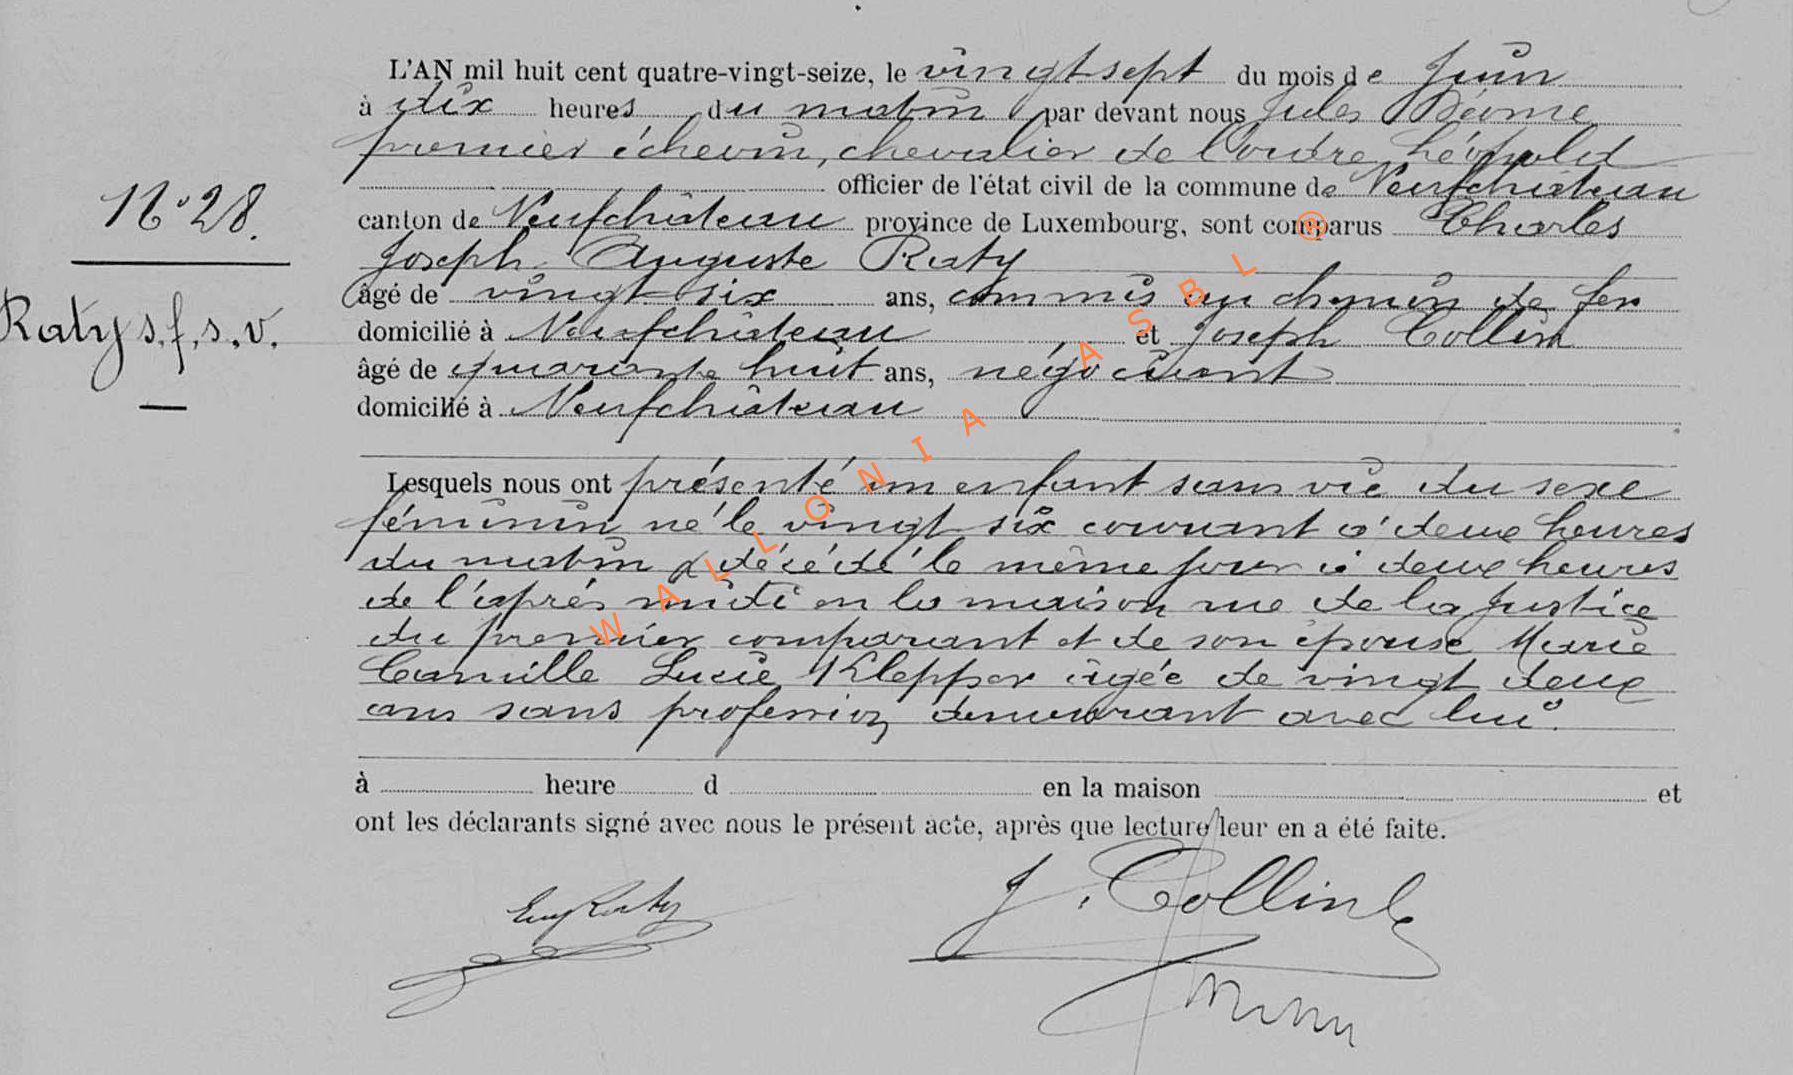 L'AN mil huit cent quatre-vingt-seize, le vingt sept du mois de Juin
à dix heures du matin par devant nous Jules
premier échevin, chevalier de l'ordre Léopold
officier de l'état civil de la commune de Neufchâteau
N° 28.
canton de Neufchâteau province de Luxembourg, sont comparus Charles
Joseph Auguste Raty
âgé de vingt six ans, commis au chemin de fer
Raty s. f. s. v.
domicilié à Neufchâteau et Joseph Collin
âgé de quarante huit ans, négociant
domicilié à Neufchâteau
Lesquels nous ont présenté un enfant sans vie du sexe
féminin né le vingt six courant à deux heures
du matin & décédé le même jour à deux heures
de l'après midi en la maison rue de la Justice
du premier comparant et de son épouse Marie
Camille Lucie Klepper âgée de vingt deux
ans sans profession demeurant avec lui.
à heure d en la maison et
ont les déclarants signé avec nous le présent acte, après que lecture leur en a été faite.
Raty
J. Collin
WALLONIA ASBL ®